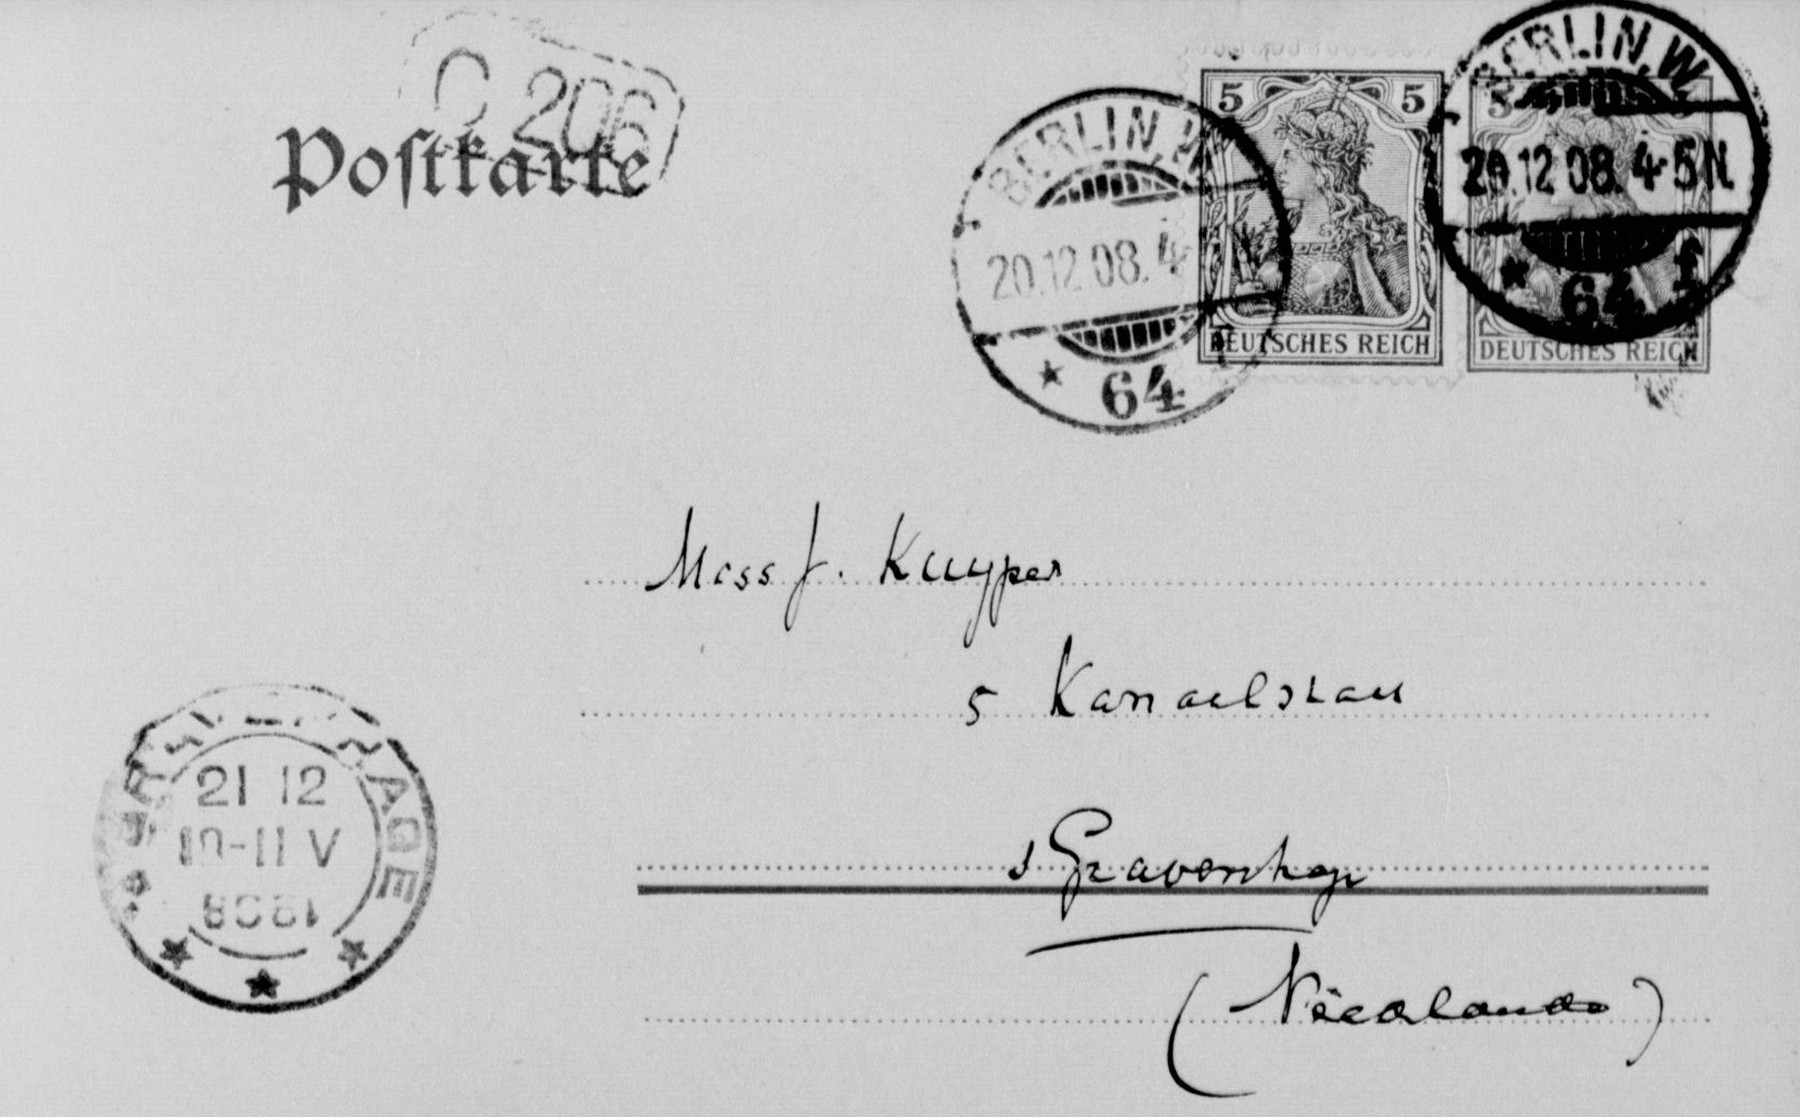 C 206
Postkarte
BERLIN, W.
20.12 08. 4-5N.
* 64 f
5 5
DEUTSCHES REICH
BERLIN, W.
20.12 08. 4
* 64 f
DEUTSCHES REICH
Miss J. Kuyper
5 Kanaalstraat
s Gravenhage
(Niederlande)
'S GRAVENHAGE
21 12
10-11 V
1908